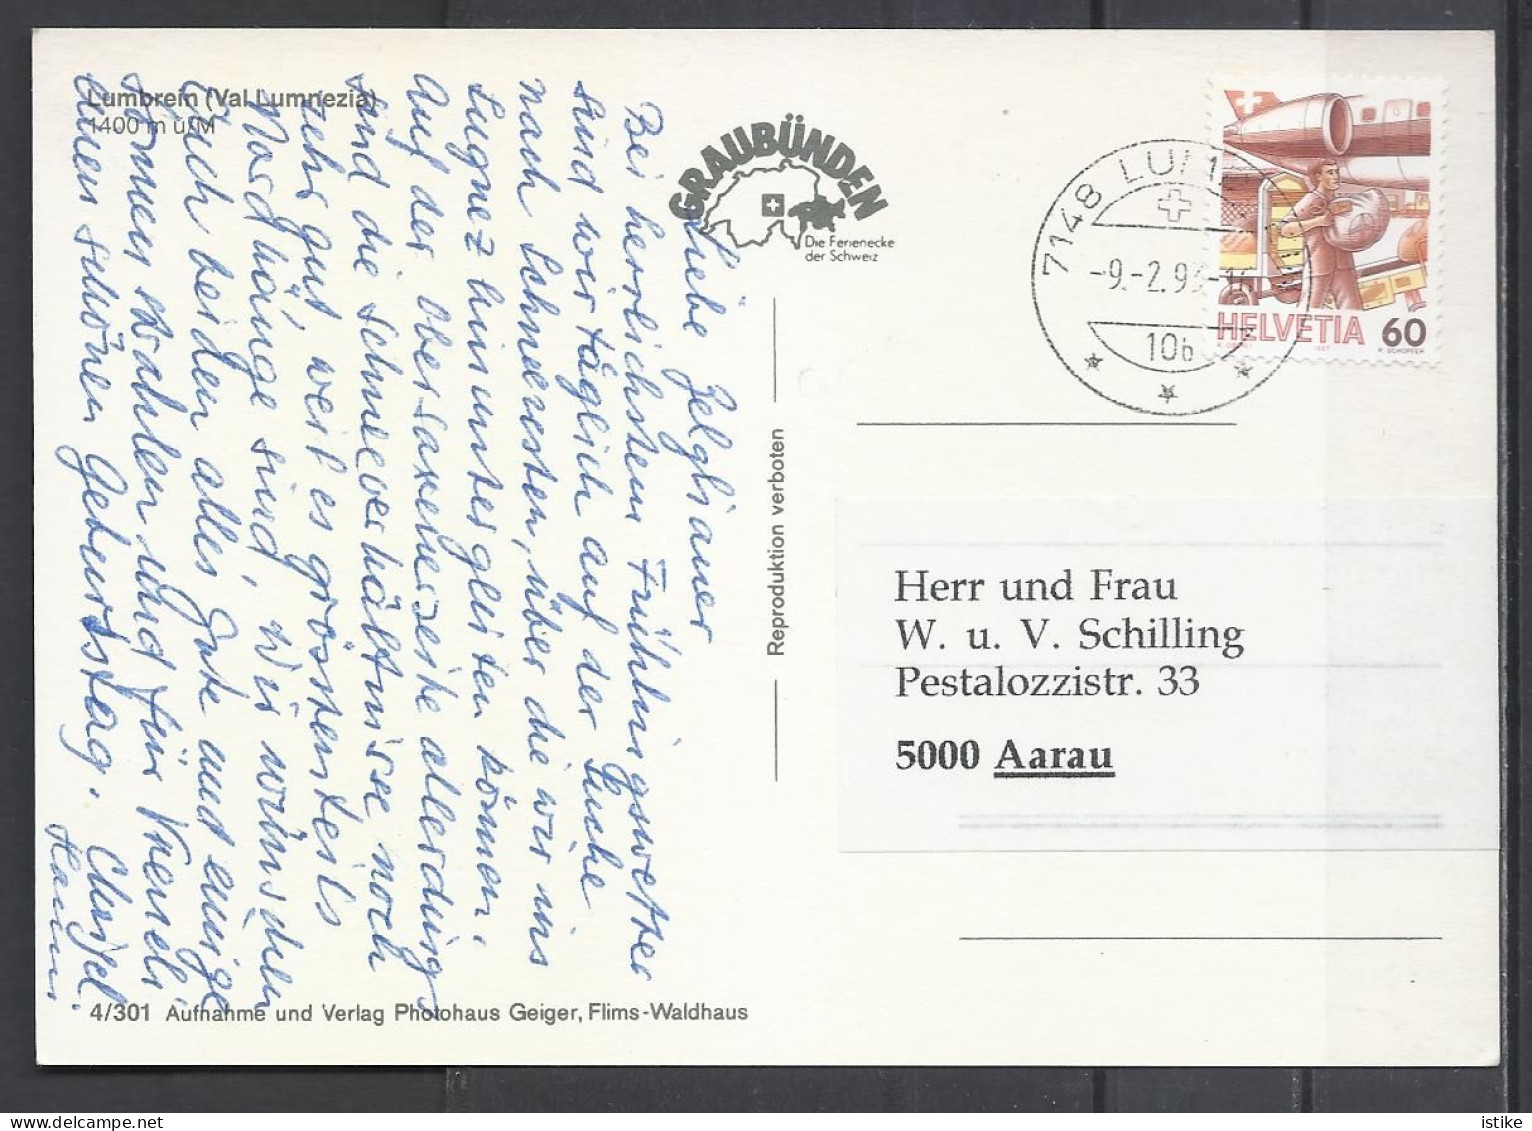 Lumbrein (Val Lumnezia)
1400 m ü/M
GRAUBÜNDEN
Die Ferienecke
der Schweiz
7148 LUM
-9.-2.9 -16
10b
HELVETIA 60
Liebe
Bei herrlichstem Frühlingswetter
sind wir täglich auf der Suche
nach Schneeresten, über die wir uns
Lugnez hinunter gleiten können.
Auf der Obersaxenerseite allerdings
sind die Schneeverhältnisse noch
sehr gut, weil es grösstenteils
Nordhänge sind. Wir wünschen
Euch beiden alles Gute und einige
Sonnenstrahlen und für
einen schönen Geburtstag.
Reproduktion verboten
Herr und Frau
W. u. V. Schilling
Pestalozzistr. 33
5000 Aarau
4/301 Aufnahme und Verlag Photohaus Geiger, Flims-Waldhaus
istike